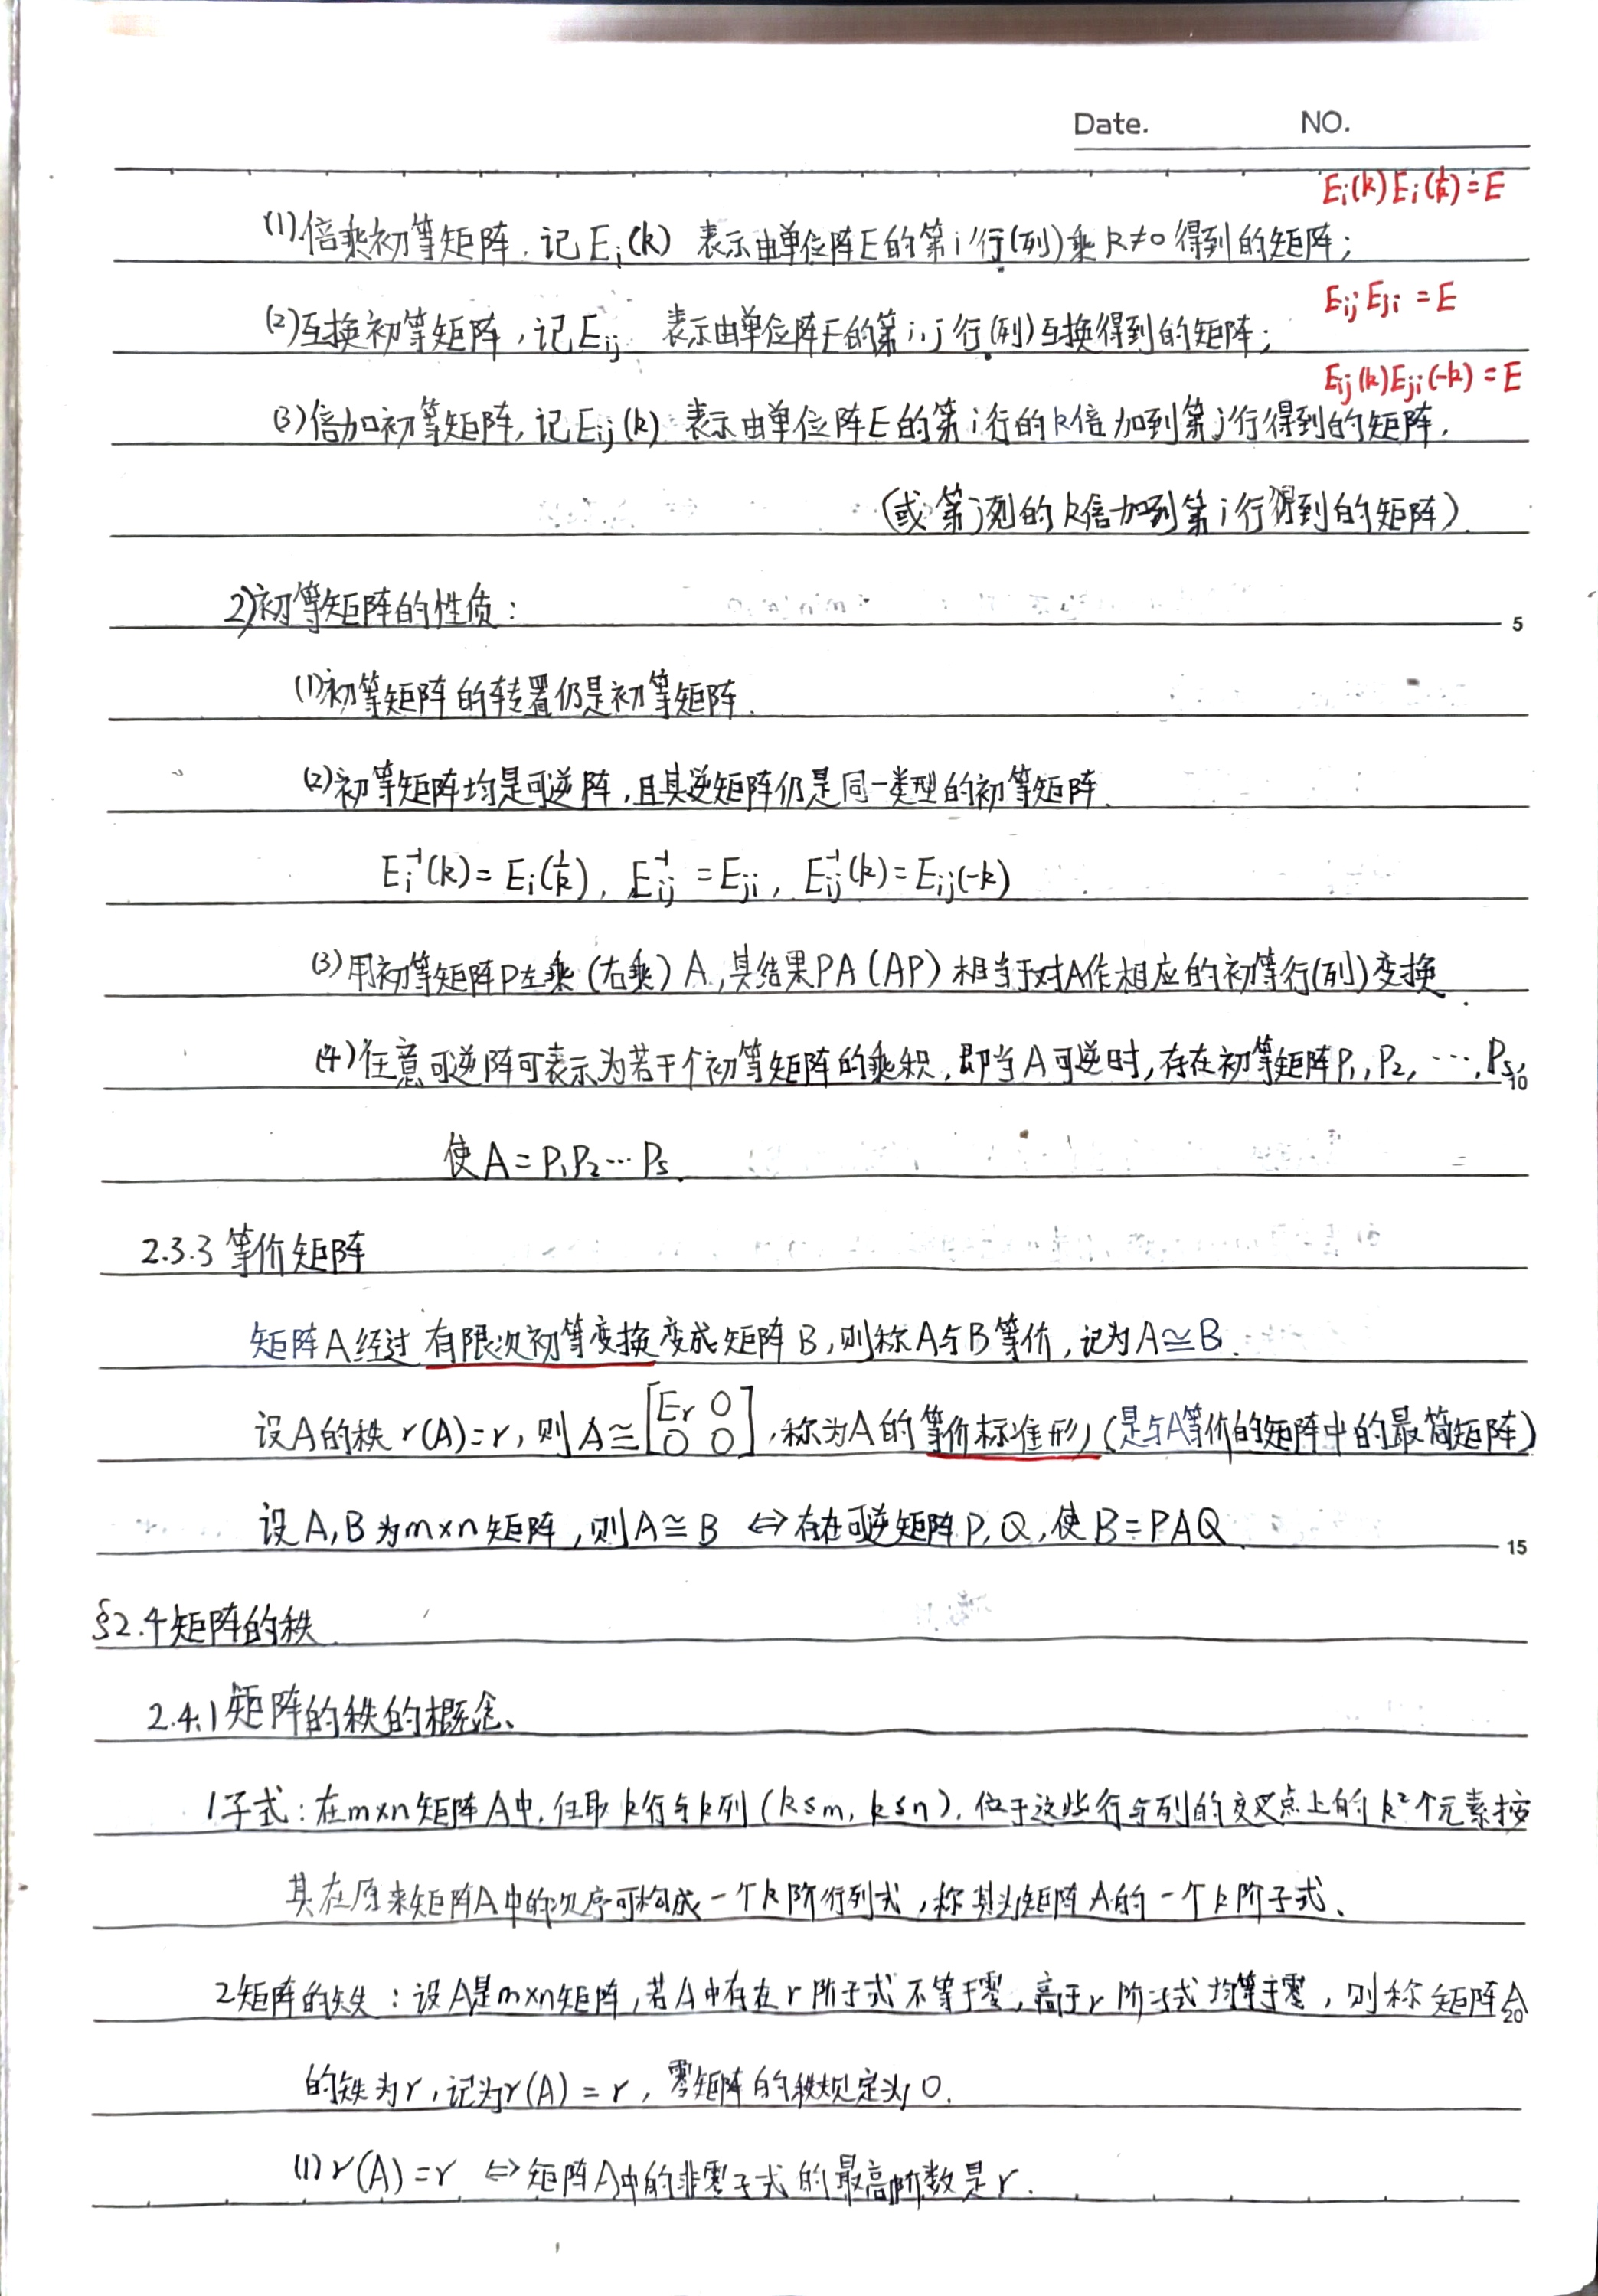 Date. NO.
Eᵢ(k)Eᵢ(1/k)=E
(1)倍乘初等矩阵,记Eᵢ(k) 表示由单位阵E的第i行(列)乘k≠0得到的矩阵;
Eᵢⱼ Eⱼᵢ = E
(2)互换初等矩阵,记Eᵢⱼ 表示由单位阵E的第i,j行(列)互换得到的矩阵;
Eᵢⱼ(k)Eⱼᵢ(-k)=E
(3)倍加初等矩阵,记Eᵢⱼ(k) 表示由单位阵E的第i行的k倍加到第j行得到的矩阵,
(或第j列的k倍加到第i行得到的矩阵).
2)初等矩阵的性质:
5
(1)初等矩阵的转置仍是初等矩阵.
(2)初等矩阵均是可逆阵,且其逆矩阵仍是同一类型的初等矩阵.
Eᵢ⁻¹(k)=Eᵢ(1/k), Eᵢⱼ⁻¹=Eⱼᵢ, Eᵢⱼ⁻¹(k)=Eᵢⱼ(-k)
(3)用初等矩阵P左乘(右乘)A,其结果PA(AP)相当于对A作相应的初等行(列)变换.
(4)任意可逆阵可表示为若干个初等矩阵的乘积,即当A可逆时,存在初等矩阵P₁,P₂,…,Pₛ,
10
使A=P₁P₂…Pₛ.
2.3.3等价矩阵
矩阵A经过有限次初等变换变成矩阵B,则称A与B等价,记为A≅B.
设A的秩r(A)=r,则A≅[Eᵣ 0; 0 0],称为A的等价标准形,(是与A等价的矩阵中的最简矩阵)
设A,B为m×n矩阵,则A≅B ⇔存在可逆矩阵P,Q,使B=PAQ.
15
§2.4矩阵的秩.
2.4.1矩阵的秩的概念、
1子式:在m×n矩阵A中,任取k行与k列(k≤m, k≤n),位于这些行与列的交叉点上的k²个元素按
其在原来矩阵A中的次序可构成一个k阶行列式,称其为矩阵A的一个k阶子式、
2矩阵的秩:设A是m×n矩阵,若A中存在r阶子式不等于零,高于r阶子式均等于零,则称矩阵A
20
的秩为r,记为r(A)=r,零矩阵的秩规定为0.
(1)r(A)=r ⇔矩阵A中的非零子式的最高阶数是r.